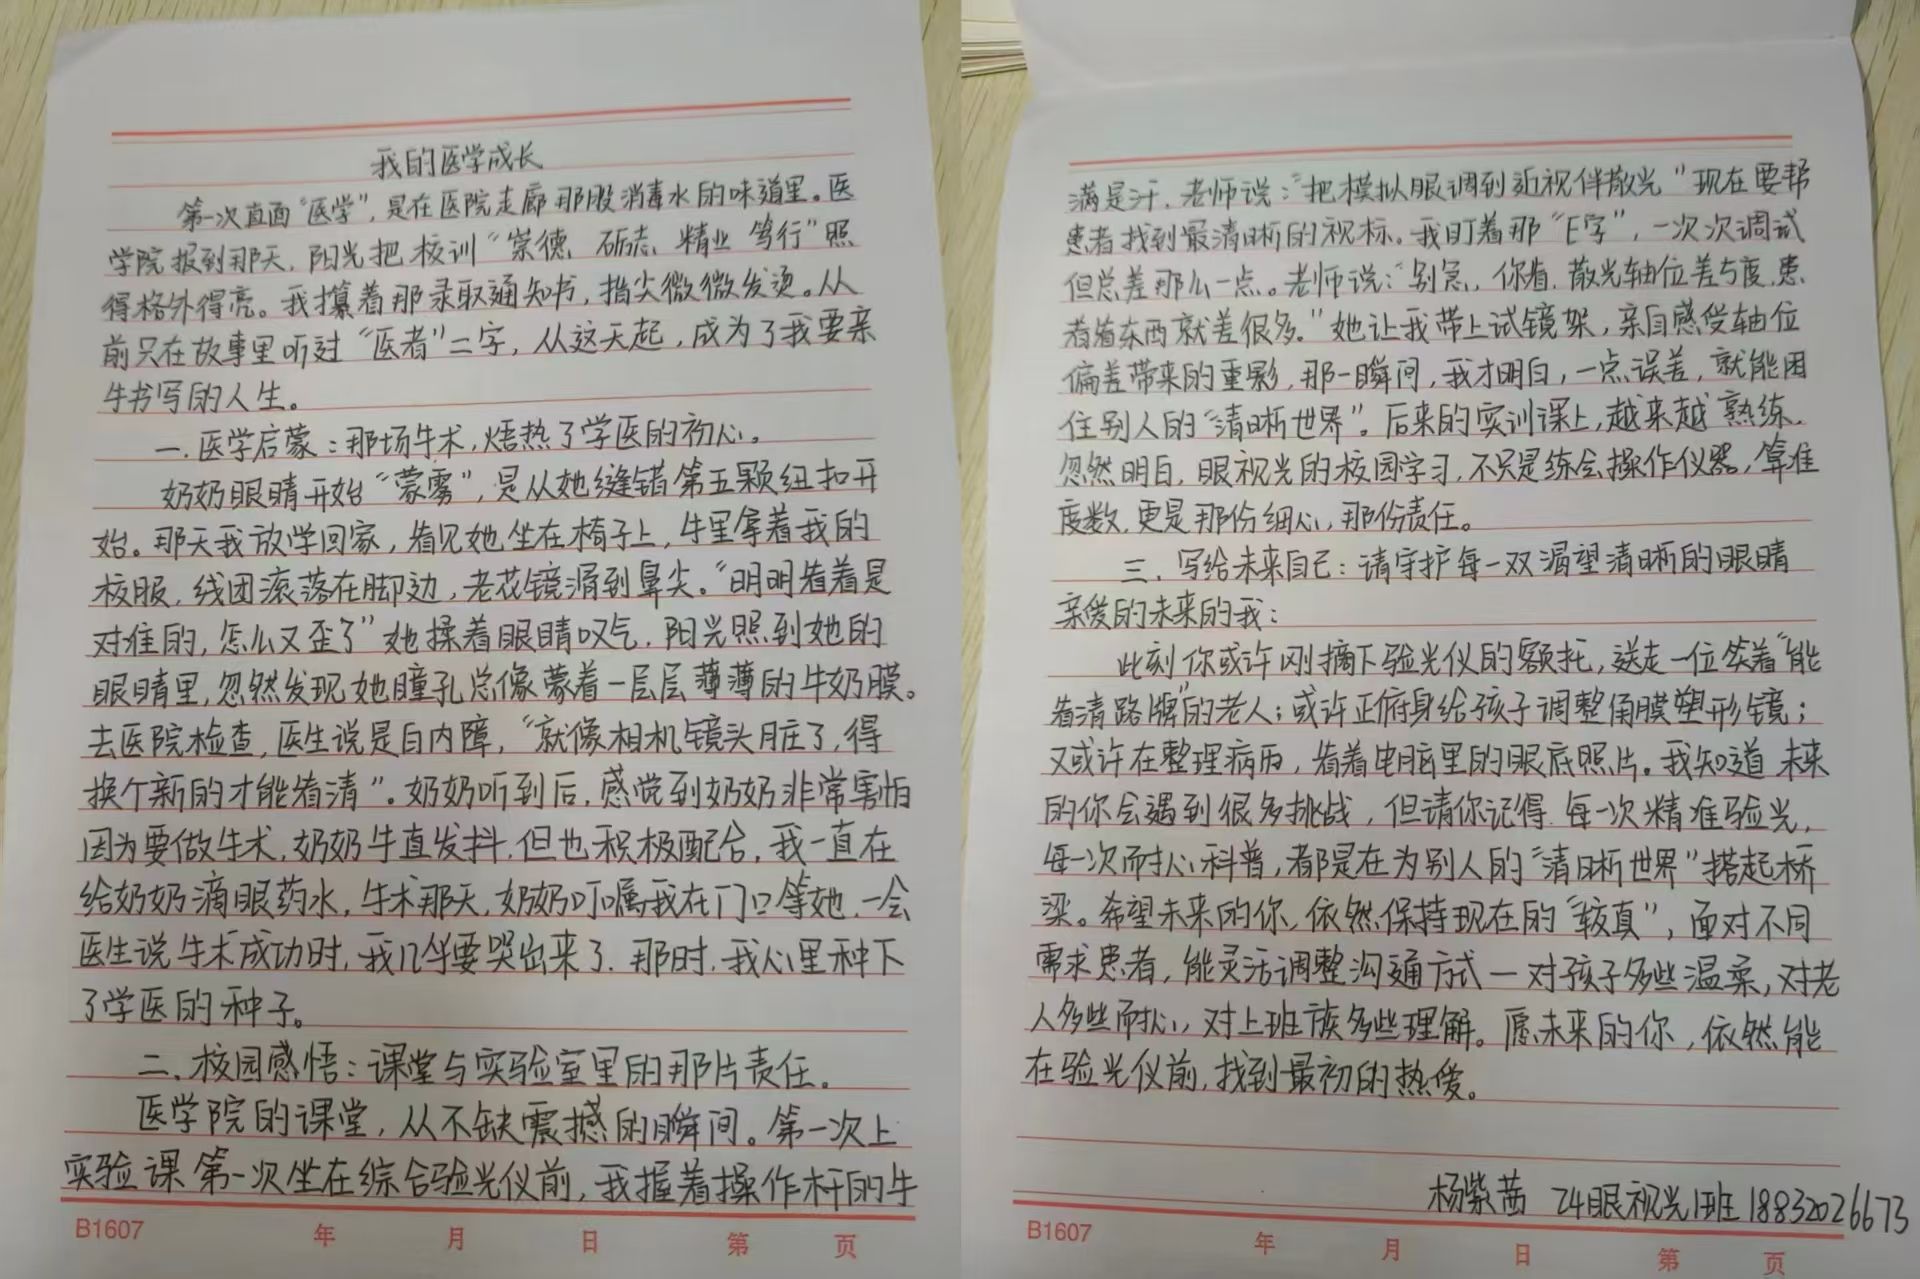 我的医学成长
第一次直面“医学”，是在医院走廊那股消毒水的味道里。医
学院报到那天，阳光把校训“崇德、砺志、精业 笃行”照
得格外得亮。我攥着那录取通知书，指尖微微发烫。从
前只在故事里听过“医者”二字，从这天起，成为了我要亲
手书写的人生。
一.医学启蒙：那场手术，焐热了学医的初心。
奶奶眼睛开始“蒙雾”，是从她缝错第五颗纽扣开
始。那天我放学回家，看见她坐在椅子上，手里拿着我的
校服，线团滚落在脚边，老花镜滑到鼻尖。“明明看着是
对准的，怎么又歪了”她揉着眼睛叹气，阳光照到她的
眼睛里，忽然发现她瞳孔总像蒙着一层层薄薄的牛奶膜。
去医院检查，医生说是白内障，“就像相机镜头脏了，得
换个新的才能看清”。奶奶听到后，感觉到奶奶非常害怕
因为要做手术，奶奶手直发抖，但也积极配合，我一直在
给奶奶滴眼药水，手术那天，奶奶叮嘱我在门口等她，一会
医生说手术成功时，我几乎要哭出来了.那时，我心里种下
了学医的种子。
二.校园感悟：课堂与实验室里的那片责任.
医学院的课堂，从不缺震撼的瞬间。第一次上
实验课第一次坐在综合验光仪前，我握着操作杆的手
B1607 年 月 日 第 页
满是汗，老师说：“把模拟眼调到近视伴散光”现在要帮
患者找到最清晰的视标。我盯着那“E字”，一次次调试
但总差那么一点。老师说：“别急，你看，散光轴位差5度，患
者看东西就差很多.”她让我带上试镜架，亲自感受轴位
偏差带来的重影，那一瞬间，我才明白，一点误差，就能困
住别人的“清晰世界”。后来的实训课上，越来越熟练，
忽然明白，眼视光的校园学习，不只是练会操作仪器，算准
度数，更是那份细心，那份责任。
三.写给未来自己：请守护每一双渴望清晰的眼睛
亲爱的未来的我：
此刻你或许刚摘下验光仪的额托，送走一位笑着“能
看清路牌”的老人；或许正俯身给孩子调整角膜塑形镜；
又或许在整理病历，看着电脑里的眼底照片。我知道未来
的你会遇到很多挑战，但请你记得.每一次精准验光，
每一次耐心科普，都是在为别人的“清晰世界”搭起桥
梁。希望未来的你，依然保持现在的“较真”，面对不同
需求患者，能灵活调整沟通方式—对孩子多些温柔，对老
人多些耐心，对上班族多些理解。愿未来的你，依然能
在验光仪前，找到最初的热爱。
杨紫茜 24眼视光1班 18832026673
B1607 年 月 日 第 页